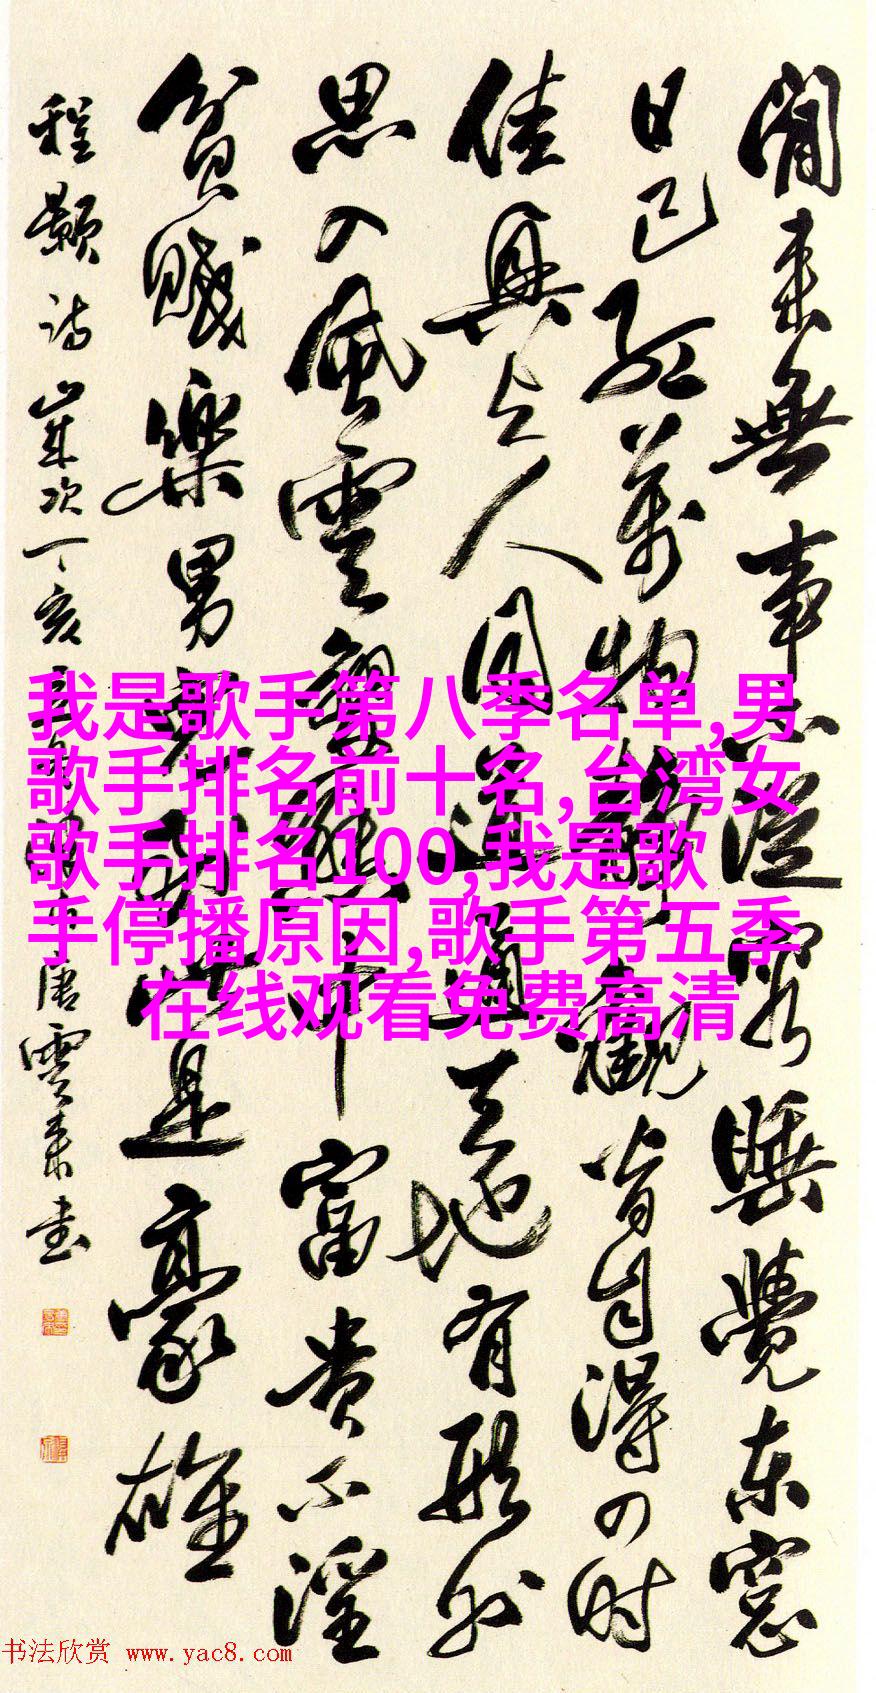 閒来無事不從容睡覺东窓
日已红萬物静觀皆自得四时
佳興与人同道通天地有形外
思入風雲變態中富贵不淫
貧賤樂男兒到此是豪雄
程颢诗岁次丁亥唐雲来书
我是歌手第八季名单,男
歌手排名前十名,台湾女
歌手排名100,我是歌
手停播原因,歌手第五季
在线观看免费高清
书法欣赏 www.yac8.com